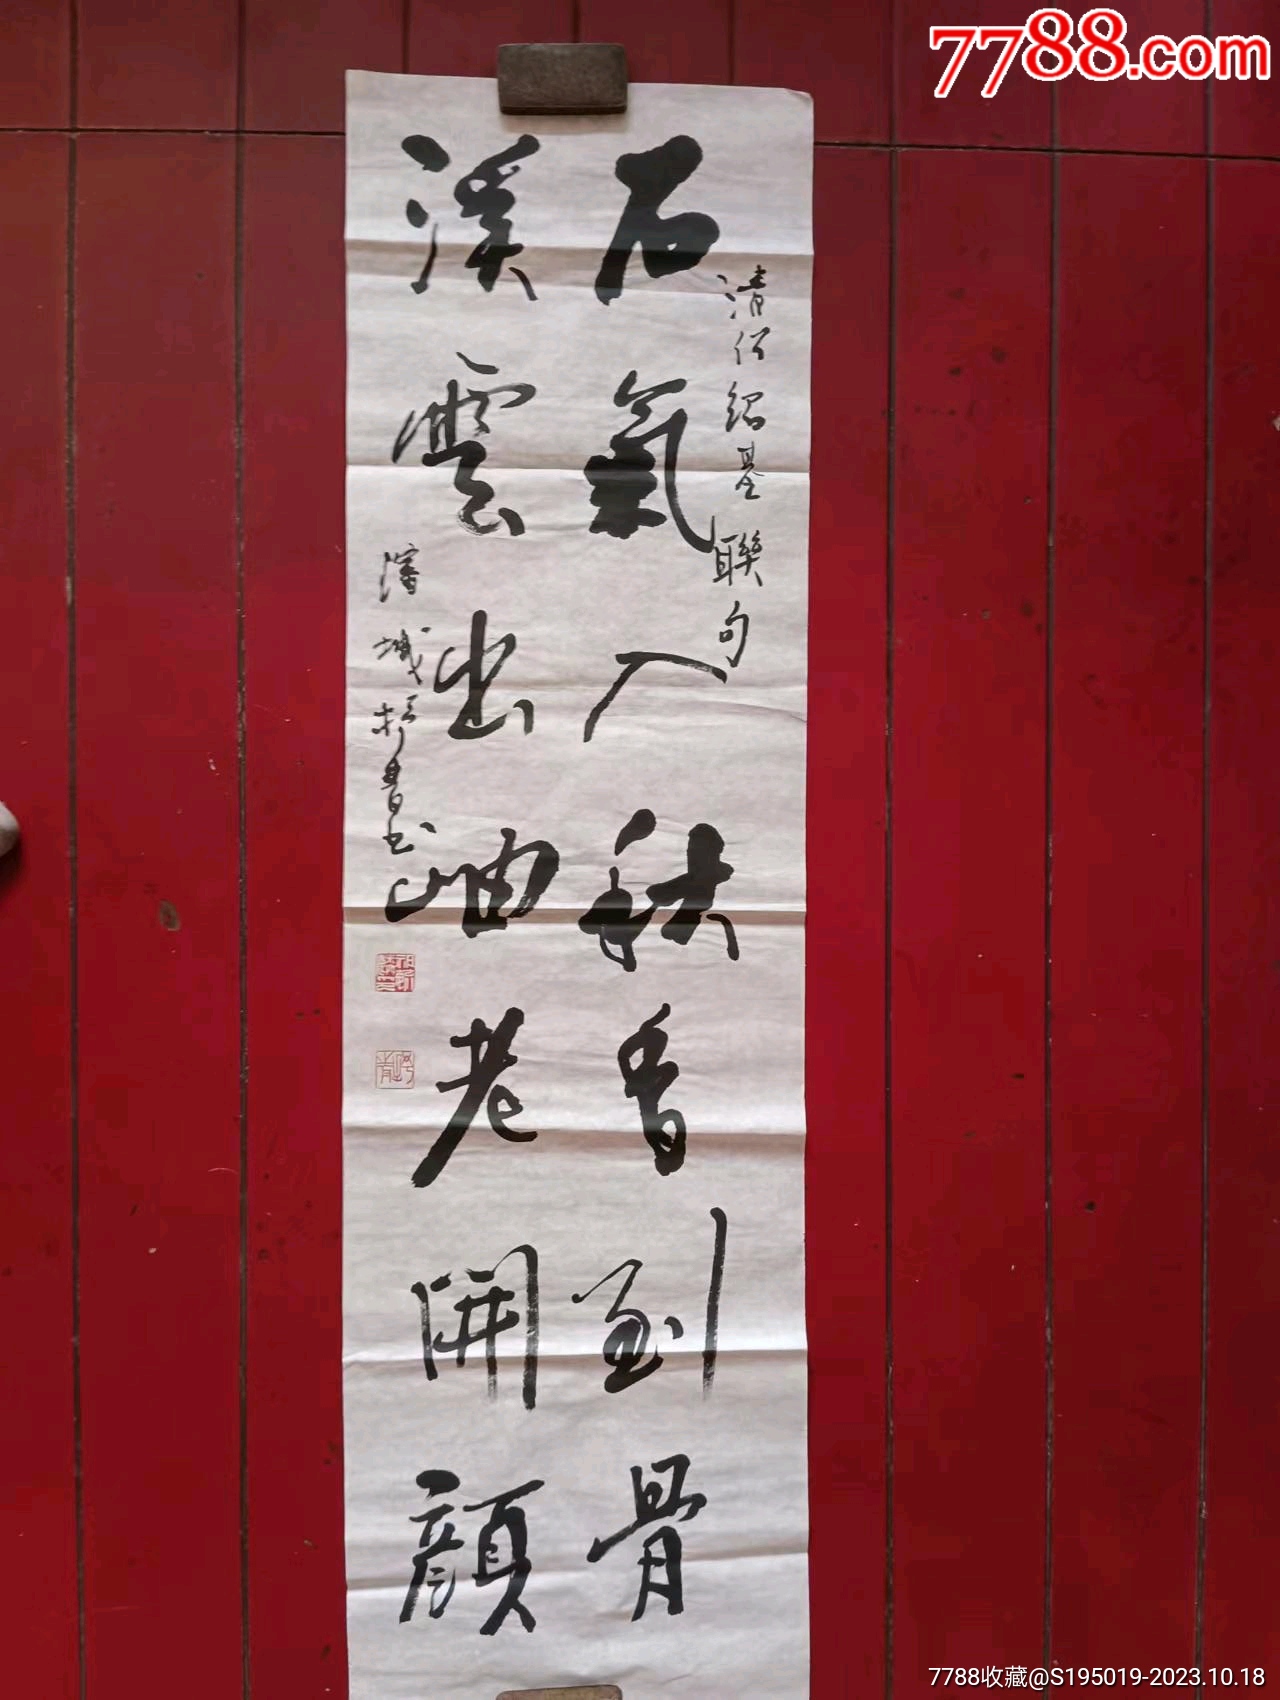 7788.com
清何绍基聯句
石氣入秋香到骨
溪雲出岫老開顔
濬城
書
7788收藏@S195019-2023.10.18